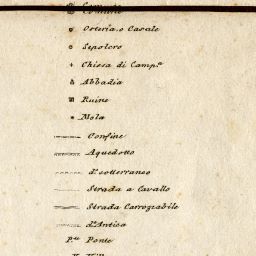 Comune
Osteria, o Casale
Sepolcro
Chiesa di Camp.ª
Abbadia
Ruine
Mola
Confine
Aquedotto
d.º sotterraneo
Strada a Cavallo
Strada Carrozabile
d.ª Antica
P.te Ponte